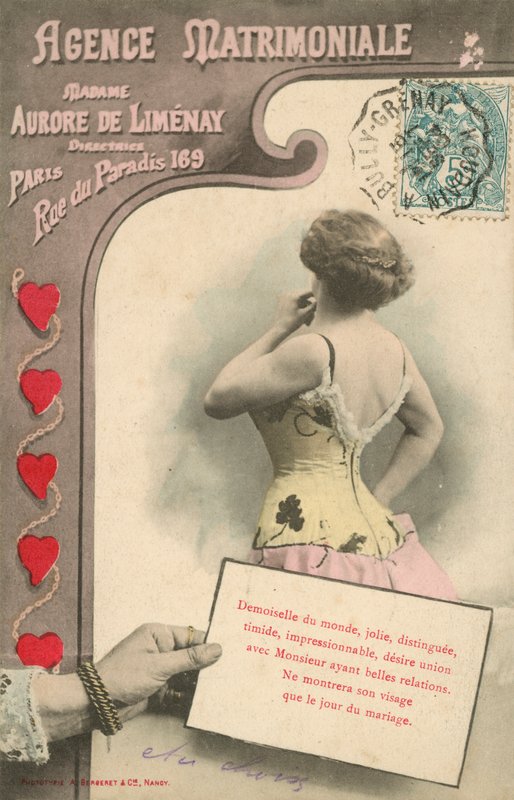 AGENCE MATRIMONIALE
MADAME
AURORE DE LIMÉNAY
DIRECTRICE
PARIS
Rue du Paradis 169
5
Demoiselle du monde, jolie, distinguée,
timide, impressionnable, désire union
avec Monsieur ayant belles relations.
Ne montrera son visage
que le jour du mariage.
PHOTOTYPIE A. BERGERET & Cie, NANCY.